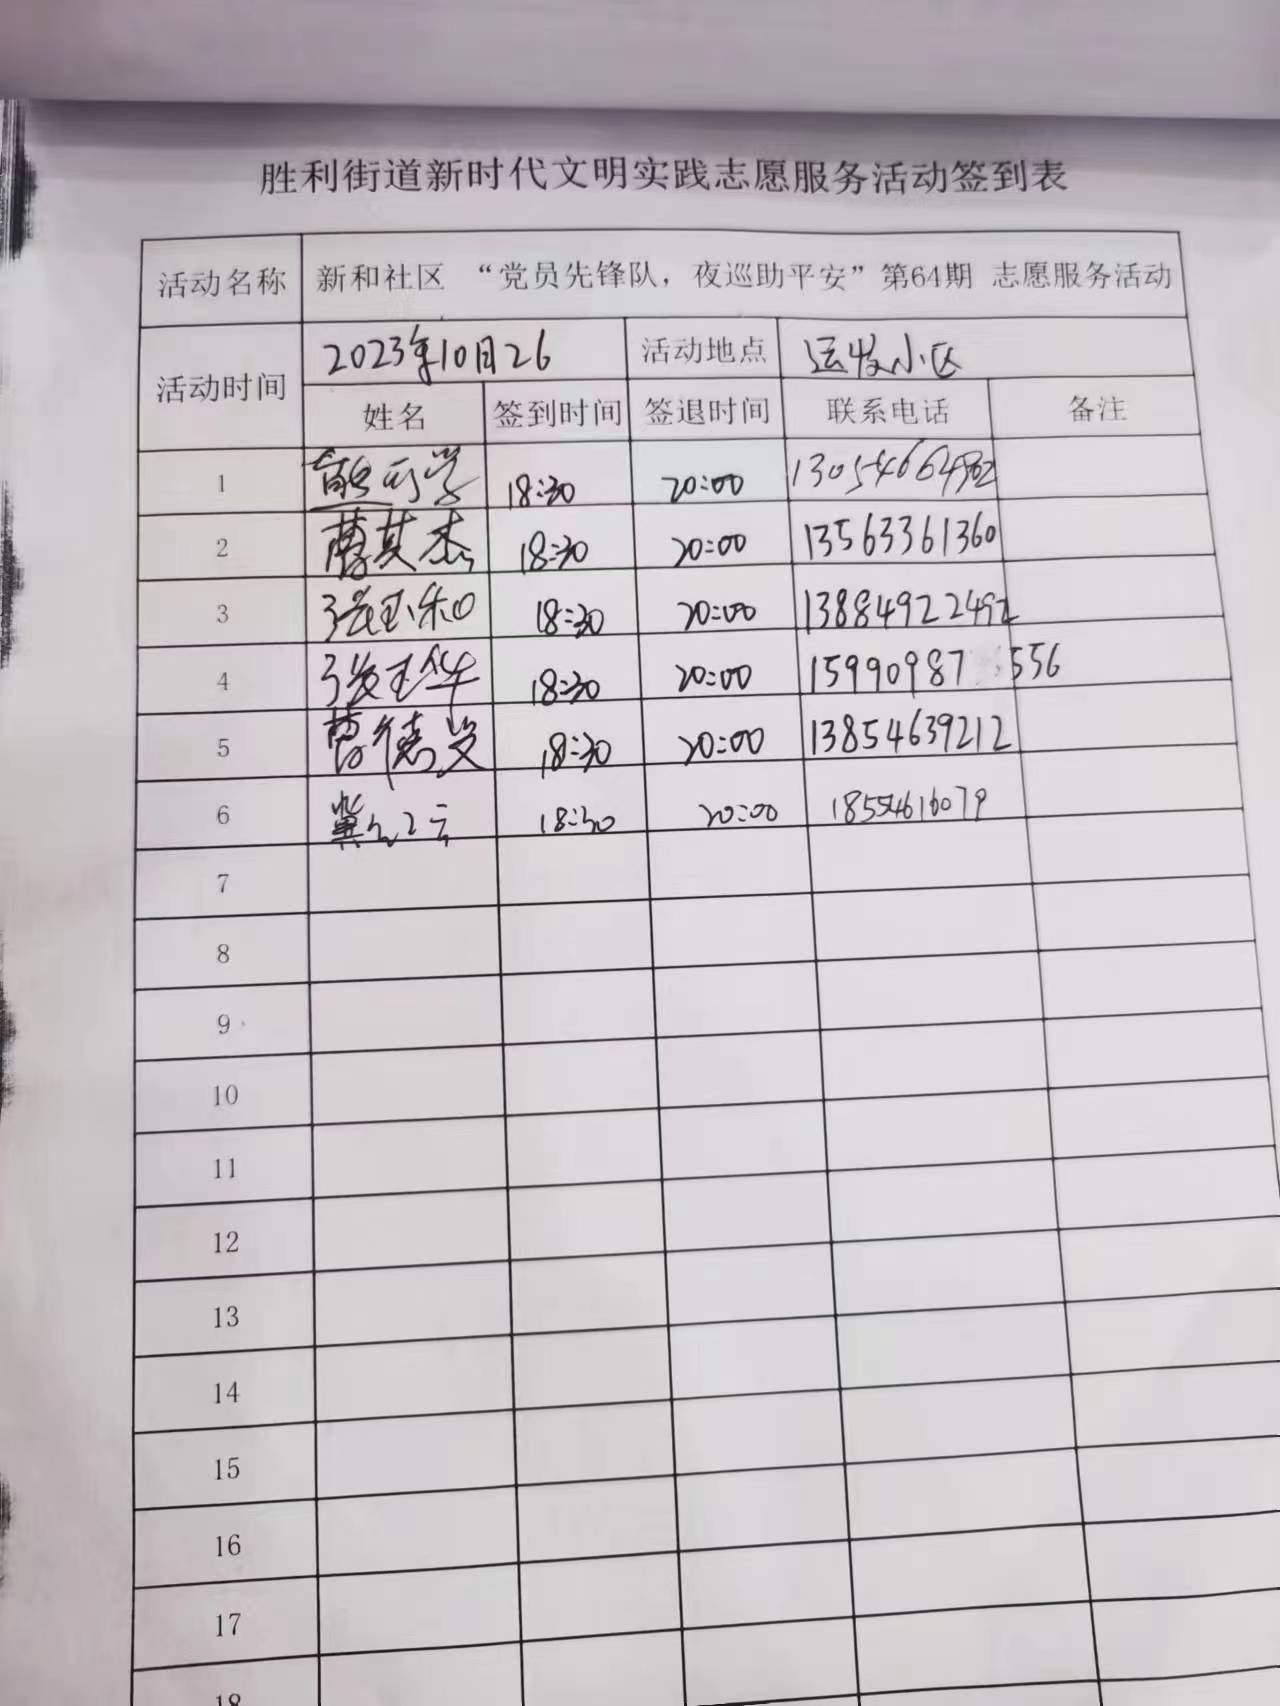 胜利街道新时代文明实践志愿服务活动签到表
活动名称 新和社区 “党员先锋队，夜巡助平安”第64期 志愿服务活动
活动时间 2023年10月26 活动地点 运发小区
姓名 签到时间 签退时间 联系电话 备注
1 18:30 20:00
2 曹其杰 18:30 20:00 13563361360
3 张玉和 18:30 20:00 13884922492
4 张玉华 18:30 20:00 15990987 556
5 曹德 18:30 20:00 13854639212
6 冀 18:30 20:00 18554616079
7
8
9
10
11
12
13
14
15
16
17
18